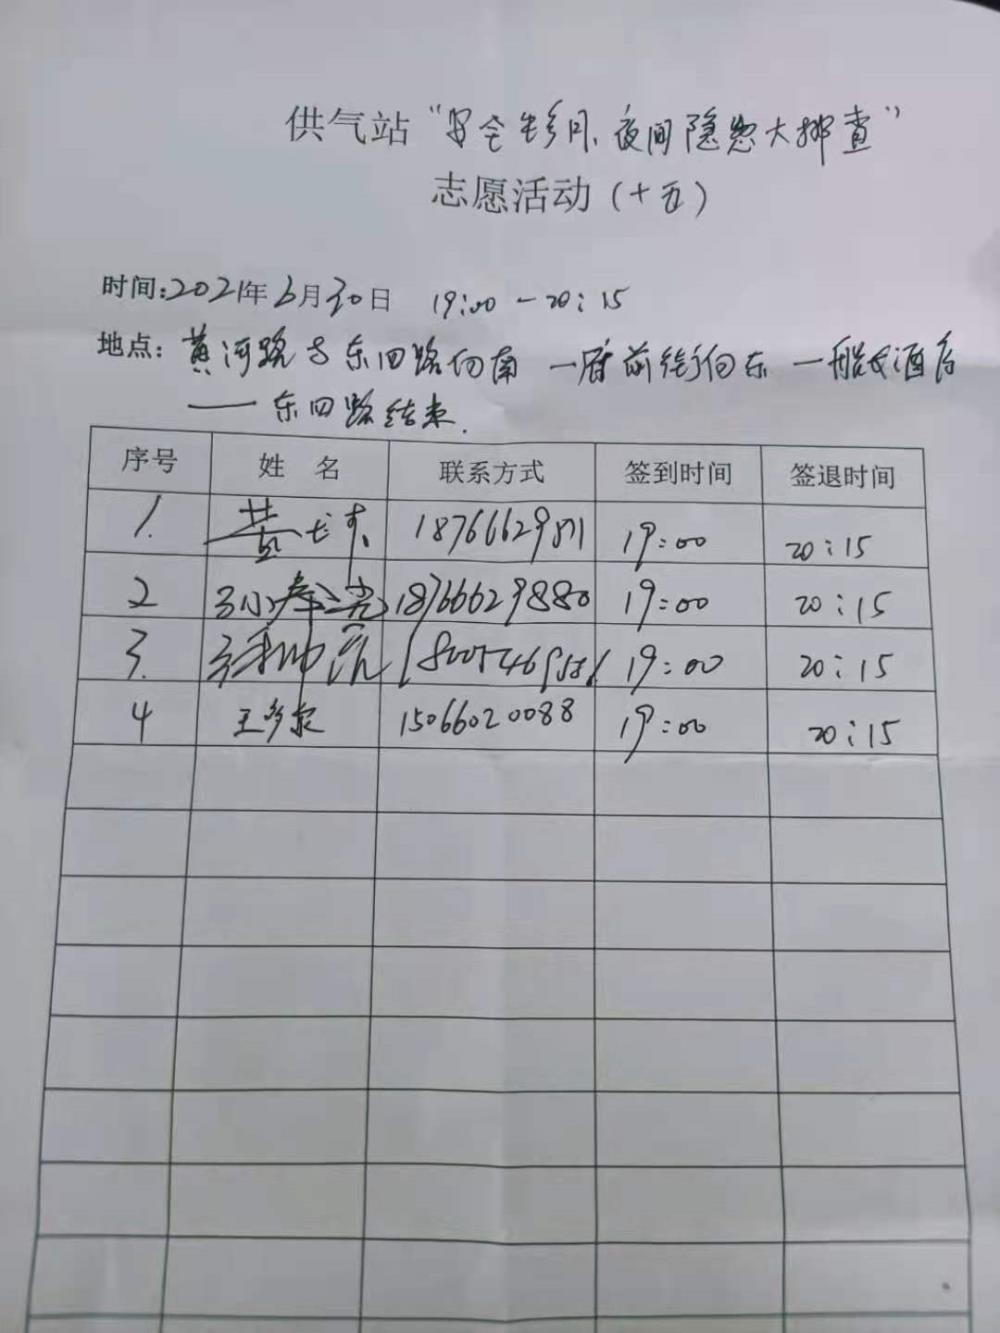 供气站“安全生产月、夜间隐患大排查”
志愿活动(十五)
时间:2021年6月30日 19:00-20:15
地点:黄河路与东四路向南—府前街向东—酒店
——东四路结束.
序号 姓名 联系方式 签到时间 签退时间
1. 黄 19:00 20:15
2 18766629880 19:00 20:15
3. 19:00 20:15
4 王 15066020088 19:00 20:15